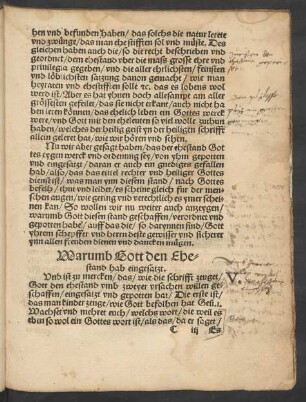 hen vnd befunden haben / das solchs die natur lerete
vnd zwünge / das man ehestifften sol vnd müste. Des
gleichen haben auch die / so die recht beschrieben vnd
geordnet / dem ehestand vber die mass grosse ehre vnd
priuilegia gegeben / vnd die aller ehrlichsten / feinsten
vnd löblichsten satzung dauon gemacht / wie man
heyraten vnd ehestifften solle ec. das es lobens wol
werd ist. Aber es hat yhnen doch allesampt am aller
grössesten gefeilet / das sie nicht erkant / auch nicht ha
ben leren können / das ehelich leben ein Gottes werck
were / vnd Gott mit den eheleuten so viel wolle zuthun
haben / welches der heilig geist ynn der heiligen schrifft
allein geleret hat / wie wir hören vnd sehen.
Nu wir aber gesagt haben / das der ehestand Got
tes eygen werck vnd ordenung sey / von yhm gepotten
vnd eingesatzt / daran er auch ein gnediges gefallen
hab / also / das das eitel rechter vnd heiliger Gottes
dienst ist / was man ynn diesem stand / nach Gottes
befelh / thut vnd leidet / es scheine gleich für der men-
schen augen / wie gering vnd verechtlich es ymer schei-
nen kan. So wollen wir nu weiter auch anzeygen /
warumb Gott diesen stand geschaffen / verordnet vnd
gepotten habe / auff das die / so darynnen sind / Gott
yhrem schepffer vnd herrn deste gewisser vnd sicherer
ynn allen freuden dienen vnd dancken mügen.
Warumb Gott den Ehe-
stand hab eingesatzt.
Vnd ist zu mercken / das / wie die schrifft zeyget /
Gott den ehestand vmb zweyer vrsachen willen ge-
schaffen / eingesatzt vnd gepotten hat / Die erste ist /
das man kinder zeuge / wie Gott befolhen hat Gen. 1.
Wachset vnd mehret euch / welchs wort / die weil es
eben so wol ein Gottes wort ist / als das / da er saget /
C iij Es
V.